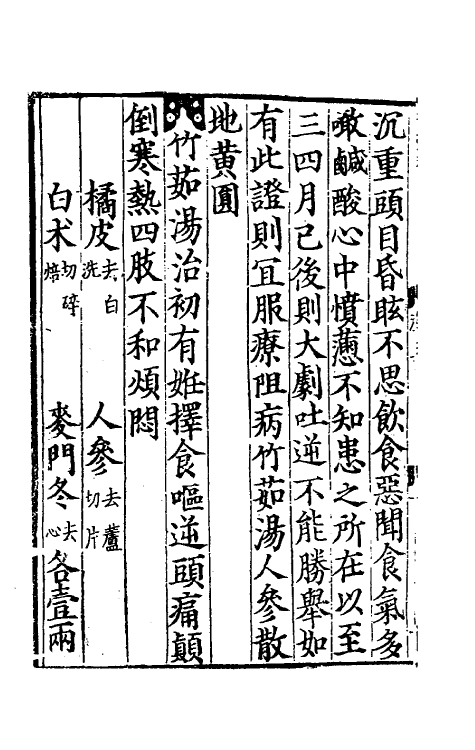 沉重頭目昏眩不思飲食惡聞食氣多
噉鹹酸心中憒懣不知患之所在以至
三四月已後則大劇吐逆不能勝舉如
有此證則冝服療阻病竹茹湯人參散
地黄圓
竹茹湯治初有姙擇食嘔逆頭痛顛
倒寒熱四肢不和煩悶
橘皮去白洗 人參去蘆切片
白术切碎焙 麥門冬去心各壹兩